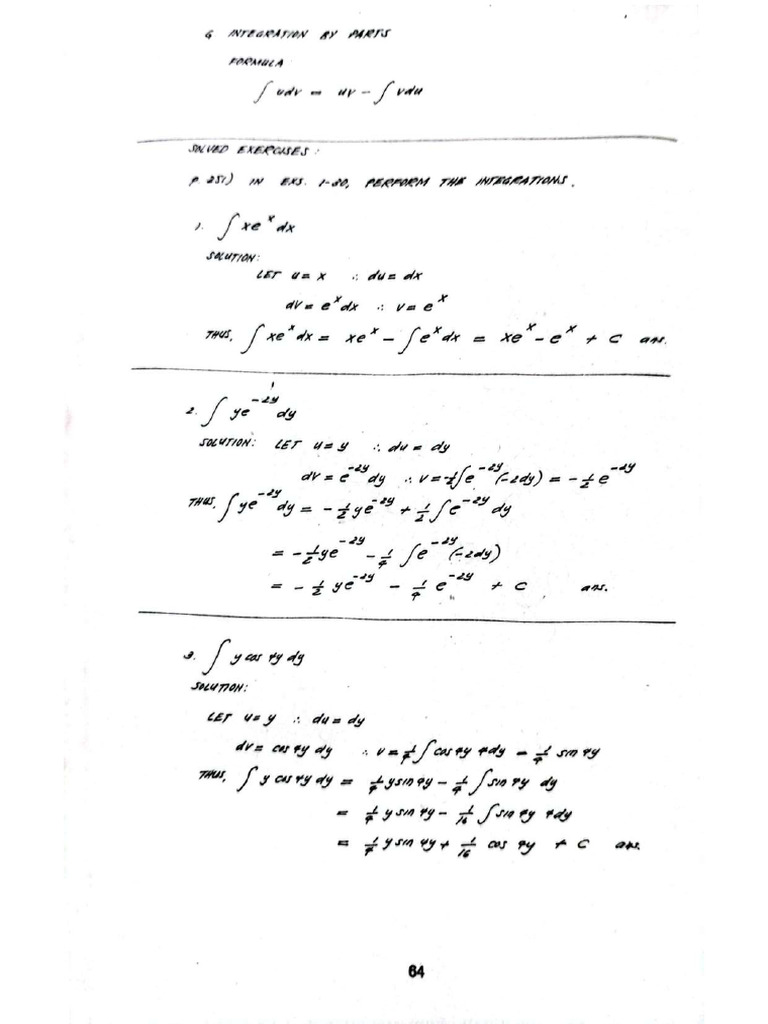 6 INTEGRATION BY PARTS
FORMULA
∫ udv = uv - ∫ vdu
SOLVED EXERCISES:
P. 251) IN EXS. 1-20, PERFORM THE INTEGRATIONS.
1. ∫ xe^x dx
SOLUTION:
LET u = x ∴ du = dx
dv = e^x dx ∴ v = e^x
THUS, ∫ xe^x dx = xe^x - ∫ e^x dx = xe^x - e^x + C ans.
2. ∫ ye^-2y dy
SOLUTION: LET u = y ∴ du = dy
dv = e^-2y dy ∴ v = -1/2 ∫ e^-2y (-2dy) = -1/2 e^-2y
THUS, ∫ ye^-2y dy = -1/2 ye^-2y + 1/2 ∫ e^-2y dy
= -1/2 ye^-2y - 1/4 ∫ e^-2y (-2dy)
= -1/2 ye^-2y - 1/4 e^-2y + C ans.
3. ∫ y cos 4y dy
SOLUTION:
LET u = y ∴ du = dy
dv = cos 4y dy ∴ v = 1/4 ∫ cos 4y 4dy = 1/4 sin 4y
THUS, ∫ y cos 4y dy = 1/4 y sin 4y - 1/4 ∫ sin 4y dy
= 1/4 y sin 4y - 1/16 ∫ sin 4y 4dy
= 1/4 y sin 4y + 1/16 cos 4y + C ans.
64